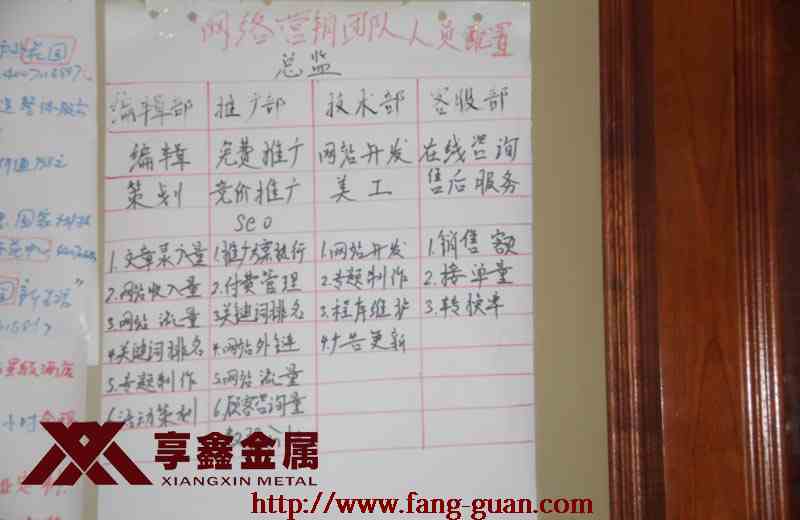 网络营销团队人员配置
总监
编辑部 推广部 技术部 客服部
编辑 免费推广 网站开发 在线咨询
策划 竞价推广 美工 售后服务
SEO
1.文章录入量 1.推广方案执行 1.网站开发 1.销售额
2.网站收入量 2.付费管理 2.专题制作 2.接单量
3.网站流量 3.关键词排名 3.程序维护 3.转换率
4.关键词排名 4.网站外链 4.广告更新
5.专题制作 5.网站流量
6.活动策划 6.顾客咨询量
享鑫金属
XIANGXIN METAL
http://www.fang-guan.com/